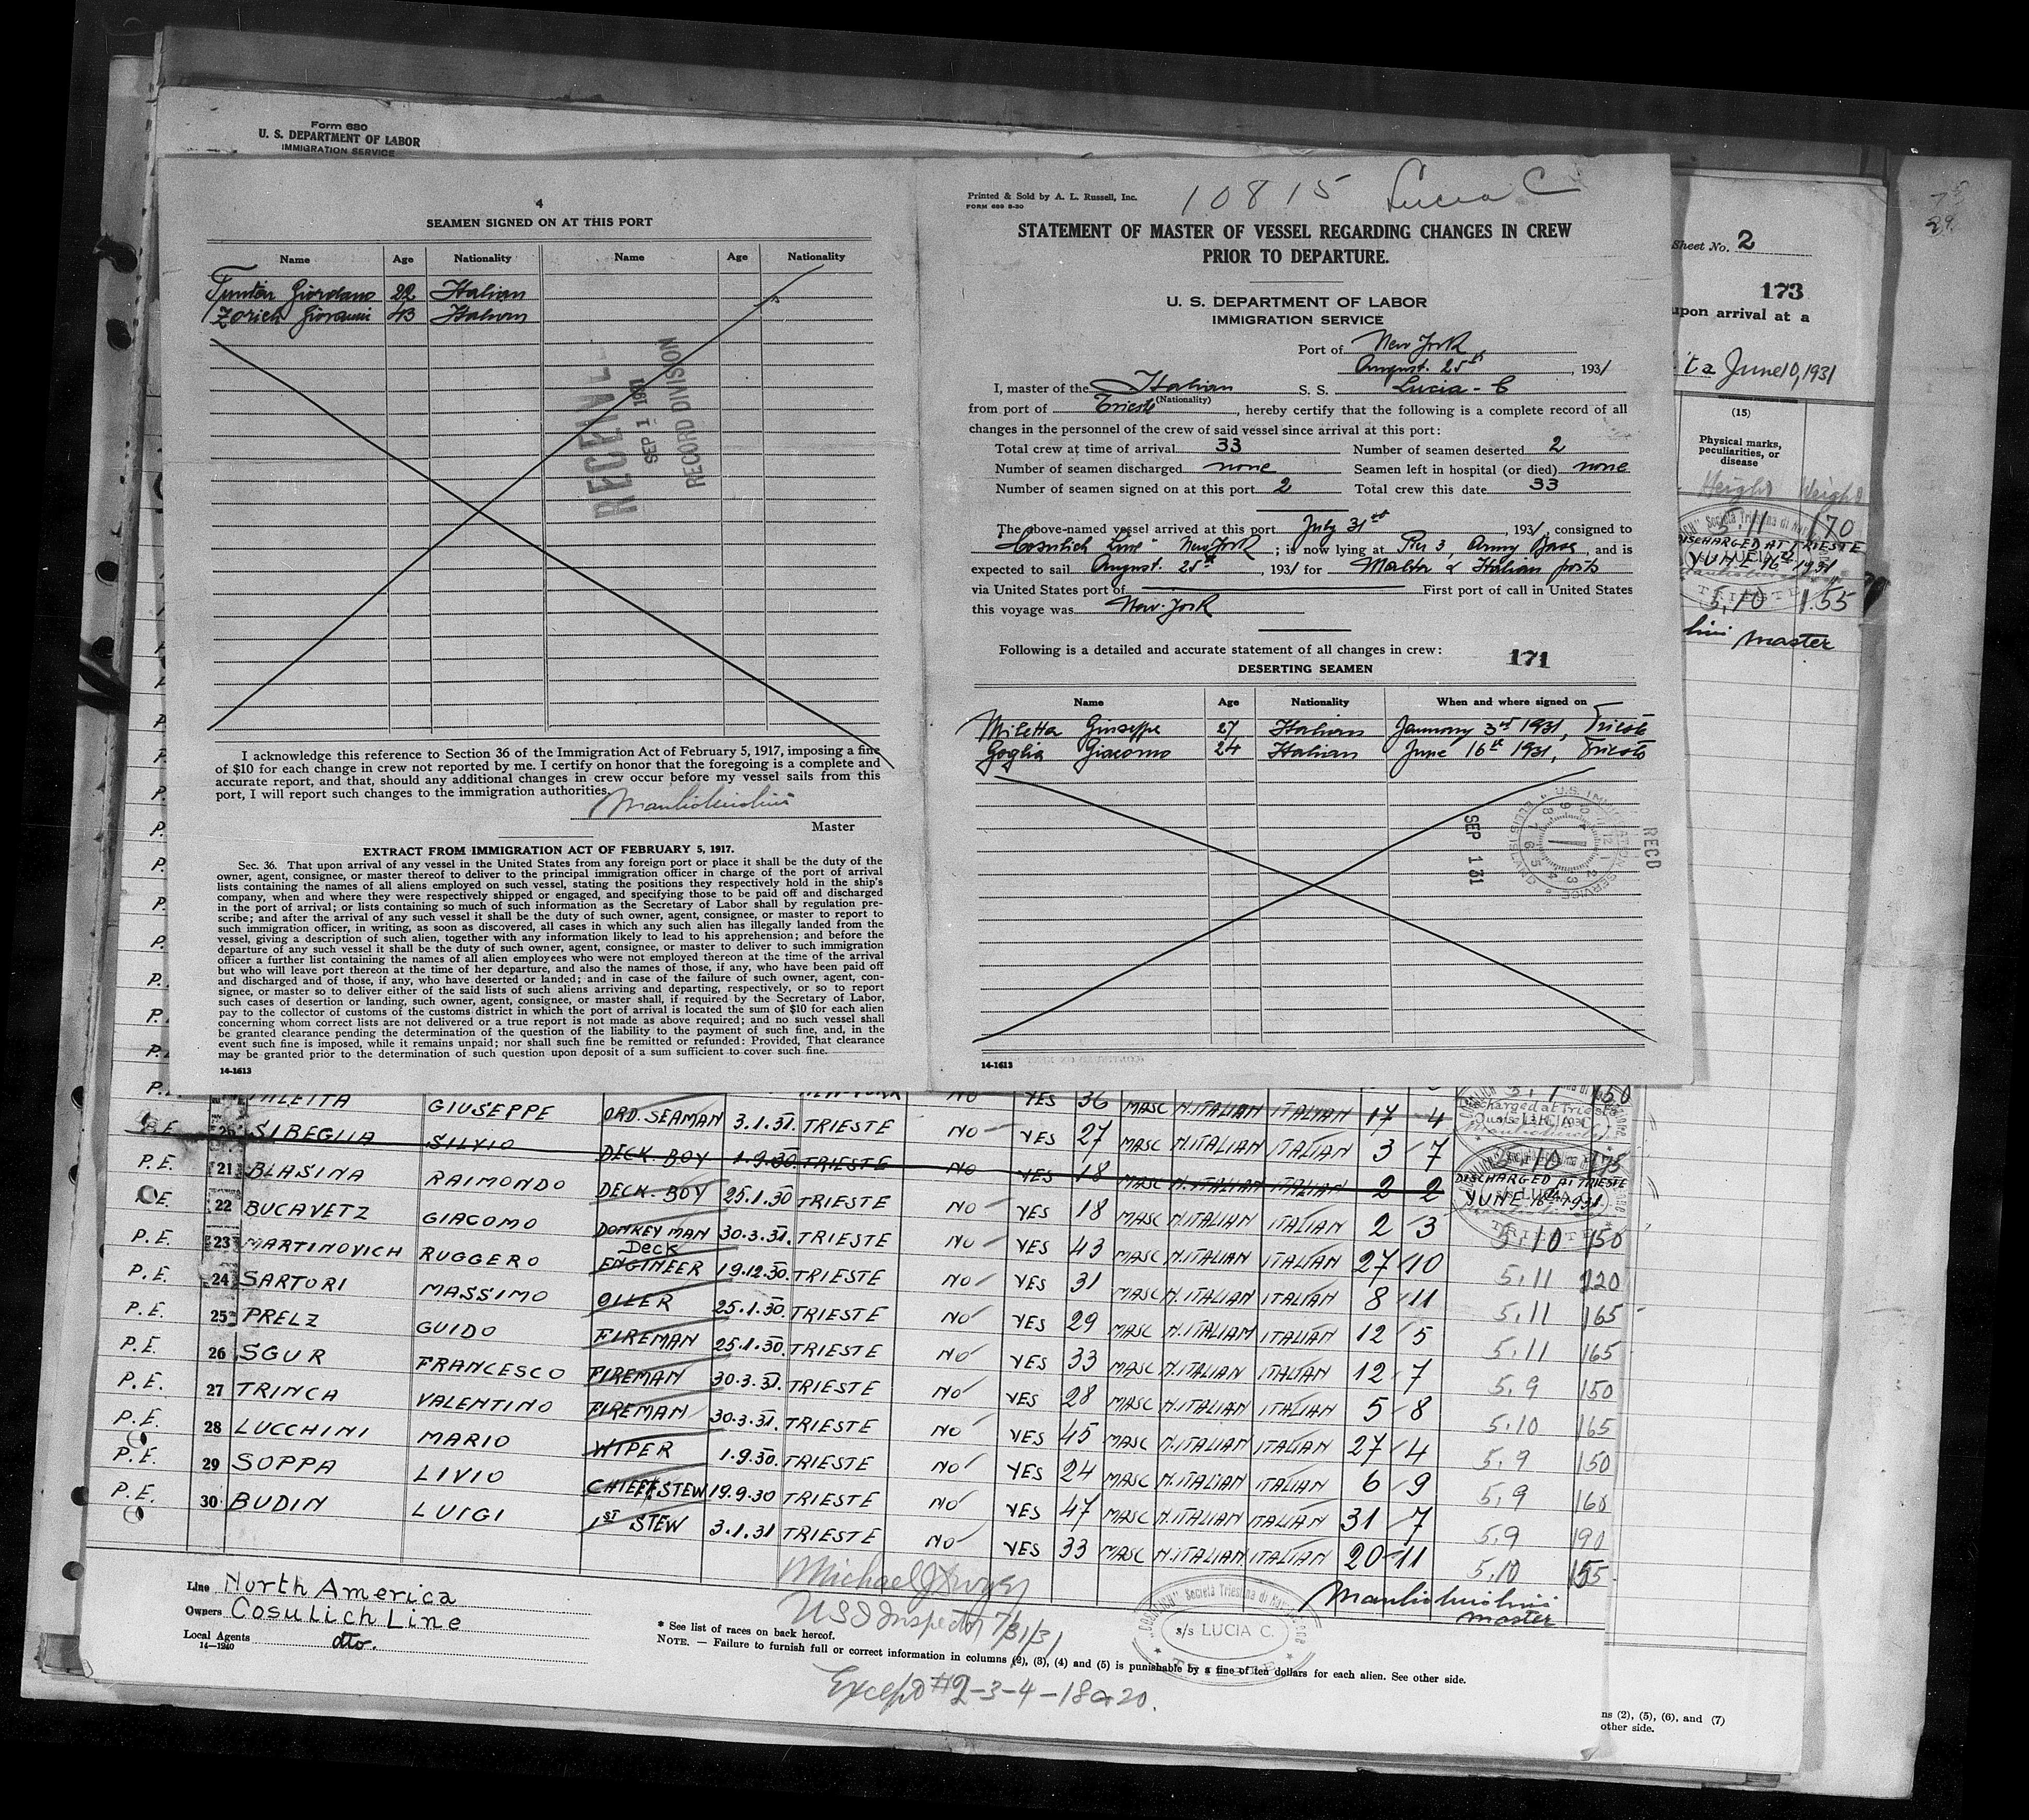 Form 680
U. S. DEPARTMENT OF LABOR
IMMIGRATION SERVICE
4
SEAMEN SIGNED ON AT THIS PORT
Name Age Nationality Name Age Nationality
Giordano 22 Italian
Zorich Giovanni 43 Italian
SEP 1 1931
RECORD DIVISION
I acknowledge this reference to Section 36 of the Immigration Act of February 5, 1917, imposing a fine
of $10 for each change in crew not reported by me. I certify on honor that the foregoing is a complete and
accurate report, and that, should any additional changes in crew occur before my vessel sails from this
port, I will report such changes to the immigration authorities.
Master
EXTRACT FROM IMMIGRATION ACT OF FEBRUARY 5, 1917.
Sec. 36. That upon arrival of any vessel in the United States from any foreign port or place it shall be the duty of the
owner, agent, consignee, or master thereof to deliver to the principal immigration officer in charge of the port of arrival
lists containing the names of all aliens employed on such vessel, stating the positions they respectively hold in the ship's
company, when and where they were respectively shipped or engaged, and specifying those to be paid off and discharged
in the port of arrival; or lists containing so much of such information as the Secretary of Labor shall by regulation pre-
scribe; and after the arrival of any such vessel it shall be the duty of such owner, agent, consignee, or master to report to
such immigration officer, in writing, as soon as discovered, all cases in which any such alien has illegally landed from the
vessel, giving a description of such alien, together with any information likely to lead to his apprehension; and before the
departure of any such vessel it shall be the duty of such owner, agent, consignee, or master to deliver to such immigration
officer a further list containing the names of all alien employees who were not employed thereon at the time of the arrival
but who will leave port thereon at the time of her departure, and also the names of those, if any, who have been paid off
and discharged and of those, if any, who have deserted or landed; and in case of the failure of such owner, agent, con-
signee, or master so to deliver either of the said lists of such aliens arriving and departing, respectively, or so to report
such cases of desertion or landing, such owner, agent, consignee, or master shall, if required by the Secretary of Labor,
pay to the collector of customs of the customs district in which the port of arrival is located the sum of $10 for each alien
concerning whom correct lists are not delivered or a true report is not made as above required; and no such vessel shall
be granted clearance pending the determination of the question of the liability to the payment of such fine, and, in the
event such fine is imposed, while it remains unpaid; nor shall such fine be remitted or refunded: Provided, That clearance
may be granted prior to the determination of such question upon deposit of a sum sufficient to cover such fine.
14-1613
Printed & Sold by A. L. Russell, Inc.
10815 Lucia C
STATEMENT OF MASTER OF VESSEL REGARDING CHANGES IN CREW
PRIOR TO DEPARTURE.
U. S. DEPARTMENT OF LABOR
IMMIGRATION SERVICE
Port of New York
August. 25th, 1931
I, master of the Italian S. S. Lucia - C
(Nationality)
from port of Trieste, hereby certify that the following is a complete record of all
changes in the personnel of the crew of said vessel since arrival at this port:
Total crew at time of arrival 33 Number of seamen deserted 2
Number of seamen discharged none Seamen left in hospital (or died) none
Number of seamen signed on at this port 2 Total crew this date 33
The above-named vessel arrived at this port July 31st, 1931, consigned to
"Cosulich Line" New York; is now lying at Pier 3, Army Base, and is
expected to sail August. 25th, 1931 for Malta & Italian ports
via United States port of First port of call in United States
this voyage was New-York
Following is a detailed and accurate statement of all changes in crew: 171
DESERTING SEAMEN
Name Age Nationality When and where signed on
Miletta Giuseppe 27 Italian January 3rd 1931, Trieste
Goglia Giacomo 24 Italian June 16th 1931, Trieste
SEP 1 31
RECD
14-1613
Sheet No. 2
173
upon arrival at a
June 10, 1931
(15)
Physical marks,
peculiarities, or
disease
Height Weight
5.11 170
DISCHARGED AT TRIESTE
JUNE 16th 1931
5,10 155
master
GIUSEPPE ORD. SEAMAN 3.1.31. TRIESTE NO YES 27 MASC N.ITALIAN ITALIAN 3 7 5.10 175
P.E. 20 SIBEGLIA SILVIO DECK. BOY 1.9.30. TRIESTE NO YES 18 MASC N.ITALIAN ITALIAN 2 2 DISCHARGED AT TRIESTE JUNE 16th 1931
P.E. 21 BLASINA RAIMONDO DECK. BOY 25.1.30 TRIESTE NO YES 18 MASC N.ITALIAN ITALIAN 2 3 5.10 150
P.E. 22 BUCAVETZ GIACOMO DONKEY MAN 30.3.31. TRIESTE NO YES 43 MASC N.ITALIAN ITALIAN 27 10 5.11 220
P.E. 23 MARTINOVICH RUGGERO Deck ENGINEER 19.12.30. TRIESTE NO YES 31 MASC N.ITALIAN ITALIAN 8 11 5.11 165
P.E. 24 SARTORI MASSIMO OILER 25.1.30. TRIESTE NO YES 29 MASC N.ITALIAN ITALIAN 12 5 5.11 165
P.E. 25 PRELZ GUIDO FIREMAN 25.1.30. TRIESTE NO YES 33 MASC N.ITALIAN ITALIAN 12 7 5.9 150
P.E. 26 SGUR FRANCESCO FIREMAN 30.3.31. TRIESTE NO YES 28 MASC N.ITALIAN ITALIAN 5 8 5.10 165
P.E. 27 TRINCA VALENTINO FIREMAN 30.3.31. TRIESTE NO YES 45 MASC N.ITALIAN ITALIAN 27 4 5.9 150
P.E. 28 LUCCHINI MARIO WIPER 1.9.30. TRIESTE NO YES 24 MASC N.ITALIAN ITALIAN 6 9 5.9 160
P.E. 29 SOPPA LIVIO CHIEF STEW 19.9.30 TRIESTE NO YES 47 MASC N.ITALIAN ITALIAN 31 7 5.9 190
P.E. 30 BUDIN LUIGI 1ST STEW 3.1.31 TRIESTE NO YES 33 MASC N.ITALIAN ITALIAN 20 11 5.10 155
master
Line North America
Owners Cosulich Line
Local Agents dto.
14-1240
US Inspector 7/31/31
s/s LUCIA C.
* See list of races on back hereof.
NOTE. — Failure to furnish full or correct information in columns (2), (3), (4) and (5) is punishable by a fine of ten dollars for each alien. See other side.
Except #2-3-4-18 or 20.
ns (2), (5), (6), and (7)
other side.